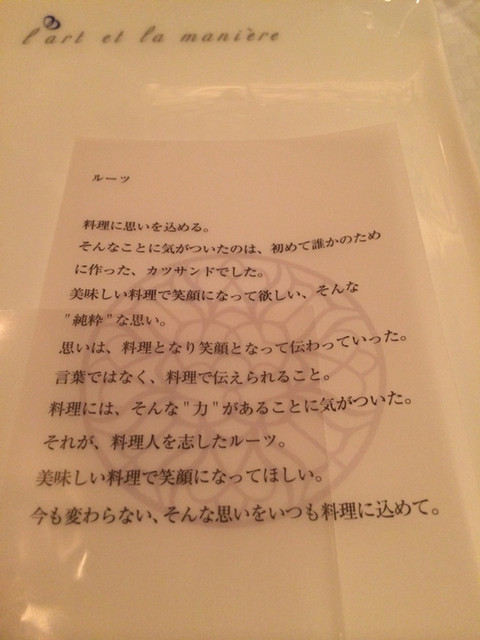 l'art et la manière
ルーツ
料理に思いを込める。
そんなことに気がついたのは、初めて誰かのため
に作った、カツサンドでした。
美味しい料理で笑顔になって欲しい、そんな
"純粋"な思い。
思いは、料理となり笑顔となって伝わっていった。
言葉ではなく、料理で伝えられること。
料理には、そんな"力"があることに気がついた。
それが、料理人を志したルーツ。
美味しい料理で笑顔になってほしい。
今も変わらない、そんな思いをいつも料理に込めて。